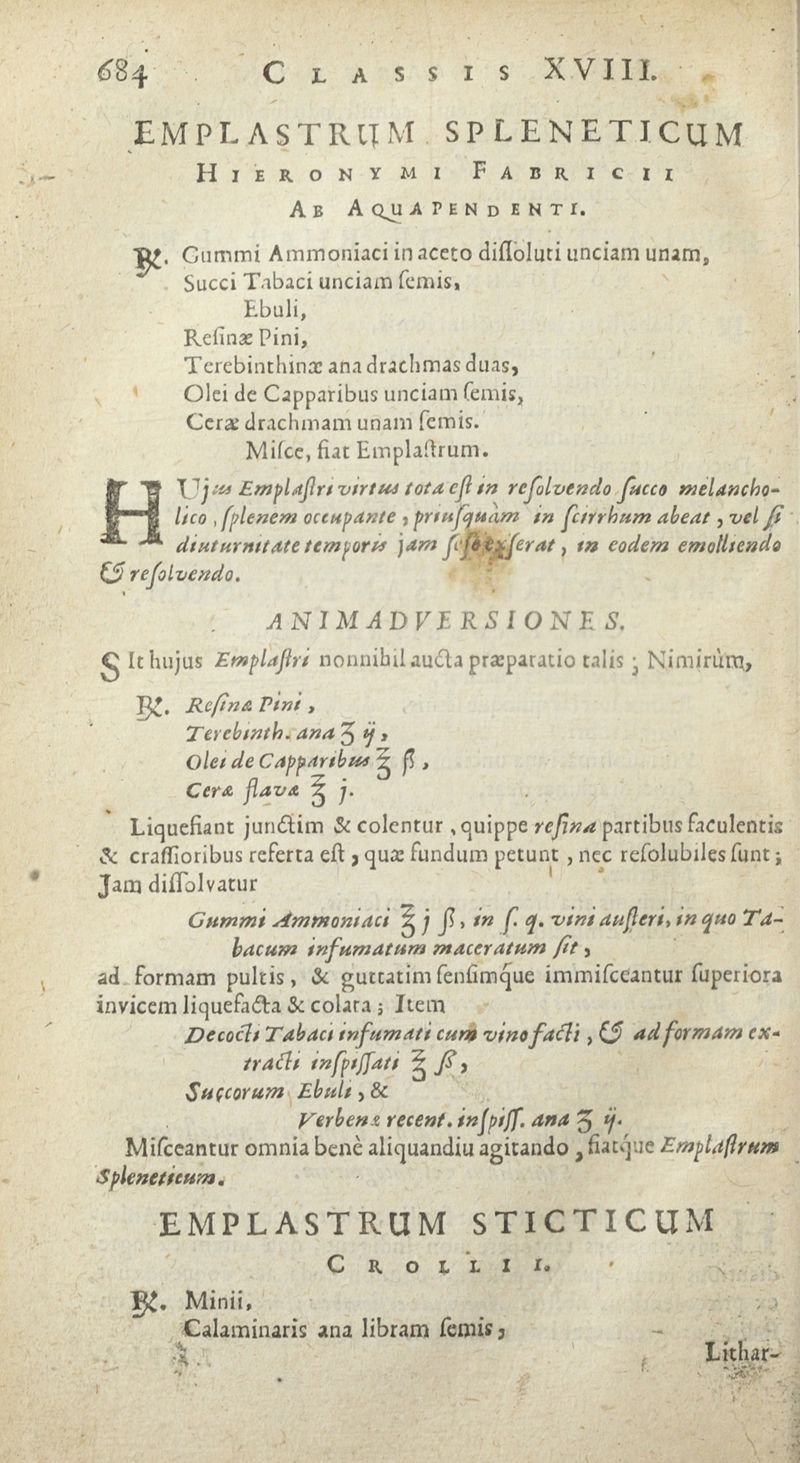 684 CLASSIS XVIII.
EMPLASTRUM SPLENETICUM
HIERONYMI FABRICII
AB AQUAPENDENTI.
℞. Gummi Ammoniaci in aceto diſſoluti unciam unam,
Succi Tabaci unciam ſemis,
Ebuli,
Reſinæ Pini,
Terebinthinæ ana drachmas duas,
Olei de Capparibus unciam ſemis,
Ceræ drachmam unam ſemis.
Miſce, fiat Emplaſtrum.
HUjus Emplaſtri virtus tota eſt in reſolvendo ſucco melancho-
lico, ſplenem occupante, priuſquàm in ſcirrhum abeat, vel ſi
diuturnitate temporis jam ſe, in eodem emolliendo
& reſolvendo.
ANIMADVERSIONES.
SIt hujus Emplaſtri nonnihil aucta præparatio talis; Nimirùm,
℞. Reſinæ Pini,
Terebinth. ana ʒ ij,
Olei de Capparibus ℥ ß,
Ceræ flavæ ℥ j.
Liquefiant junctim & colentur, quippe reſina partibus fæculentis
& craſſioribus referta eſt, quæ fundum petunt, nec reſolubiles ſunt;
Jam diſſolvatur
Gummi Ammoniaci ℥ j ß, in ſ. q. vini auſteri, in quo Ta-
bacum infumatum maceratum ſit,
ad formam pultis, & guttatim ſenſimque immiſceantur ſuperiora
invicem liquefacta & colata; Item
Decocti Tabaci infumati cum vino facti, & ad formam ex-
tracti inſpiſſati ℥ ß,
Succorum Ebuli, &
Verbenæ recent. inſpiſſ. ana ʒ ij.
Miſceantur omnia benè aliquandiu agitando, fiatque Emplaſtrum
Spleneticum.
EMPLASTRUM STICTICUM
CROLLII.
℞. Minii,
Calaminaris ana libram ſemis,
Lithar-